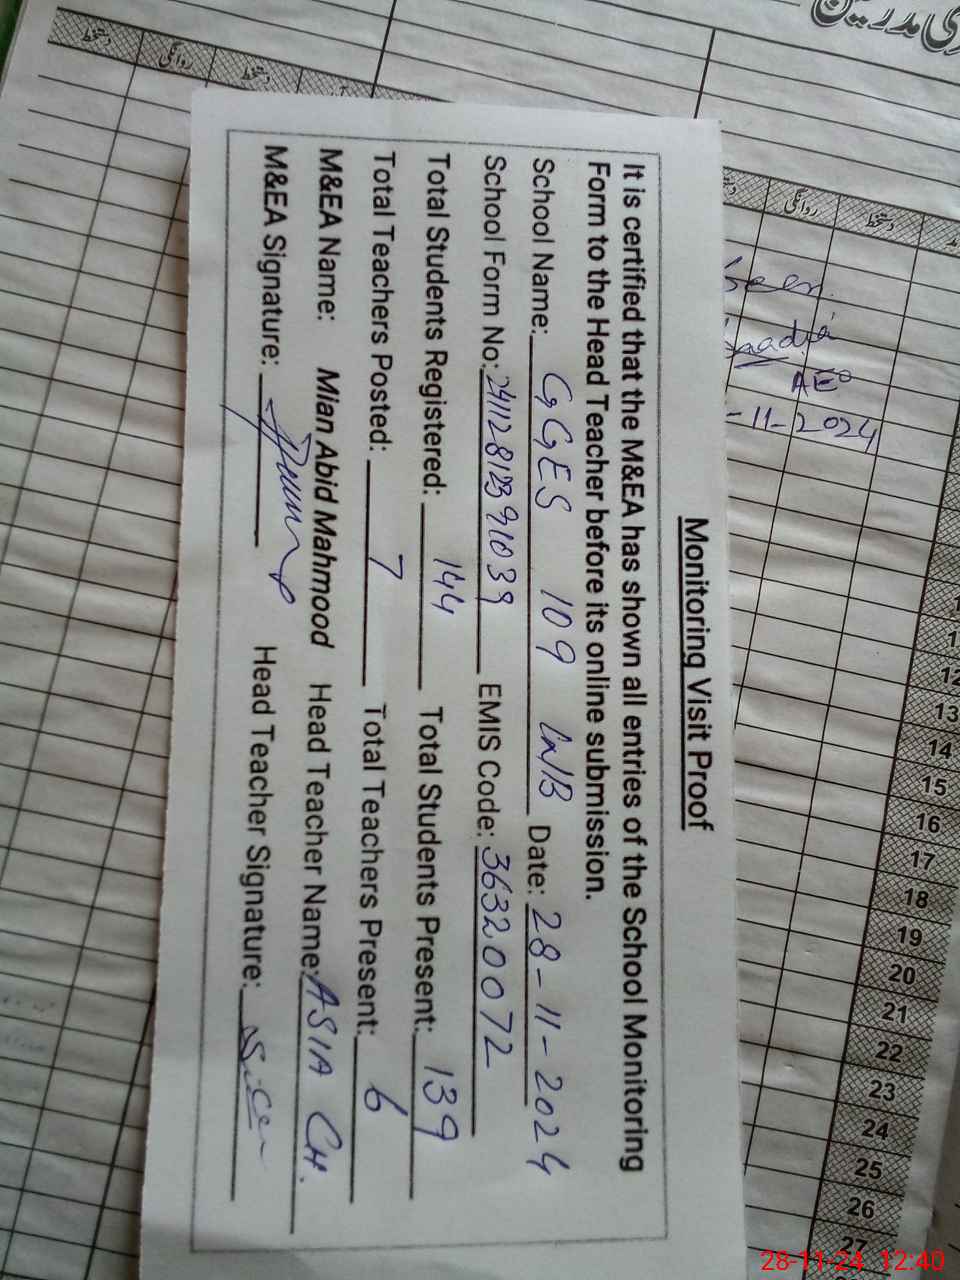 Monitoring Visit Proof
It is certified that the M&EA has shown all entries of the School Monitoring
Form to the Head Teacher before its online submission.
School Name: GGES 109 WB Date: 28-11-2024
School Form No: EMIS Code: 36320072
Total Students Registered: 144 Total Students Present: 139
Total Teachers Posted: 7 Total Teachers Present: 6
M&EA Name: Mian Abid Mahmood Head Teacher Name: ASIA CH.
M&EA Signature: Head Teacher Signature:
دستخط روانگی دستخط
روانگی دستخط
AEO
-11-2024
12
13
14
15
16
17
18
19
20
21
22
23
24
25
26
27
28-11-24 12:40